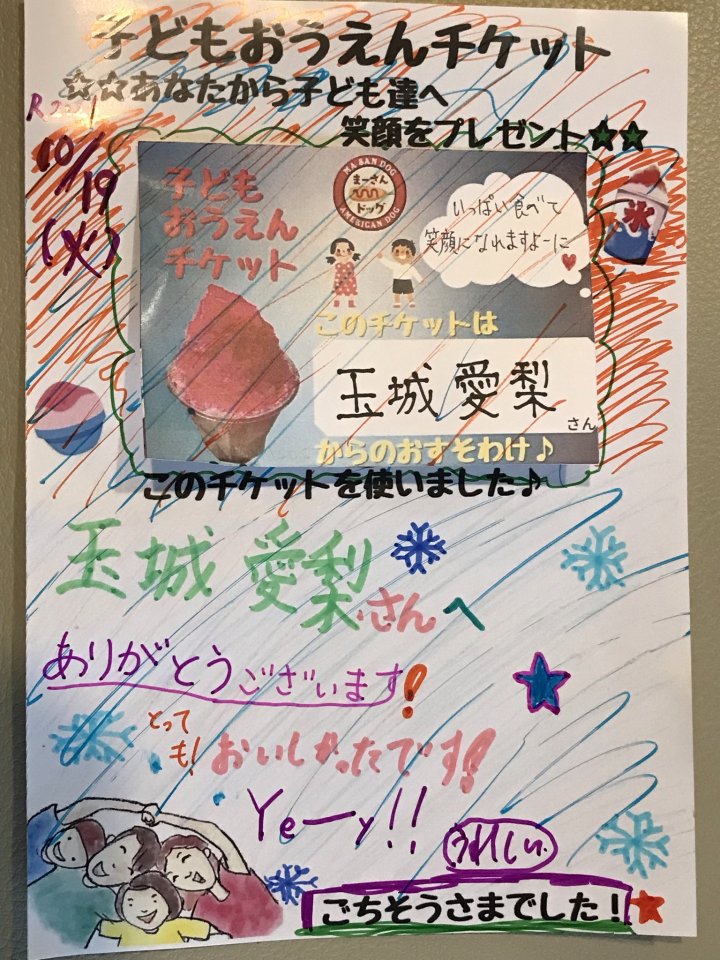 子どもおうえんチケット
☆☆あなたから子ども達へ
笑顔をプレゼント★★
10/19
(火)
MA SAN DOG
まーさん
ドッグ
AMERICAN DOG
子ども
おうえん
チケット
いっぱい食べて
笑顔になれますよーに♥
氷
このチケットは
玉城 愛梨
さん
からのおすそわけ♪
このチケットを使いました♪
玉城 愛梨さんへ
ありがとうございます!
とっても!おいしかったです!
Yeーy!!
うれしい
ごちそうさまでした!